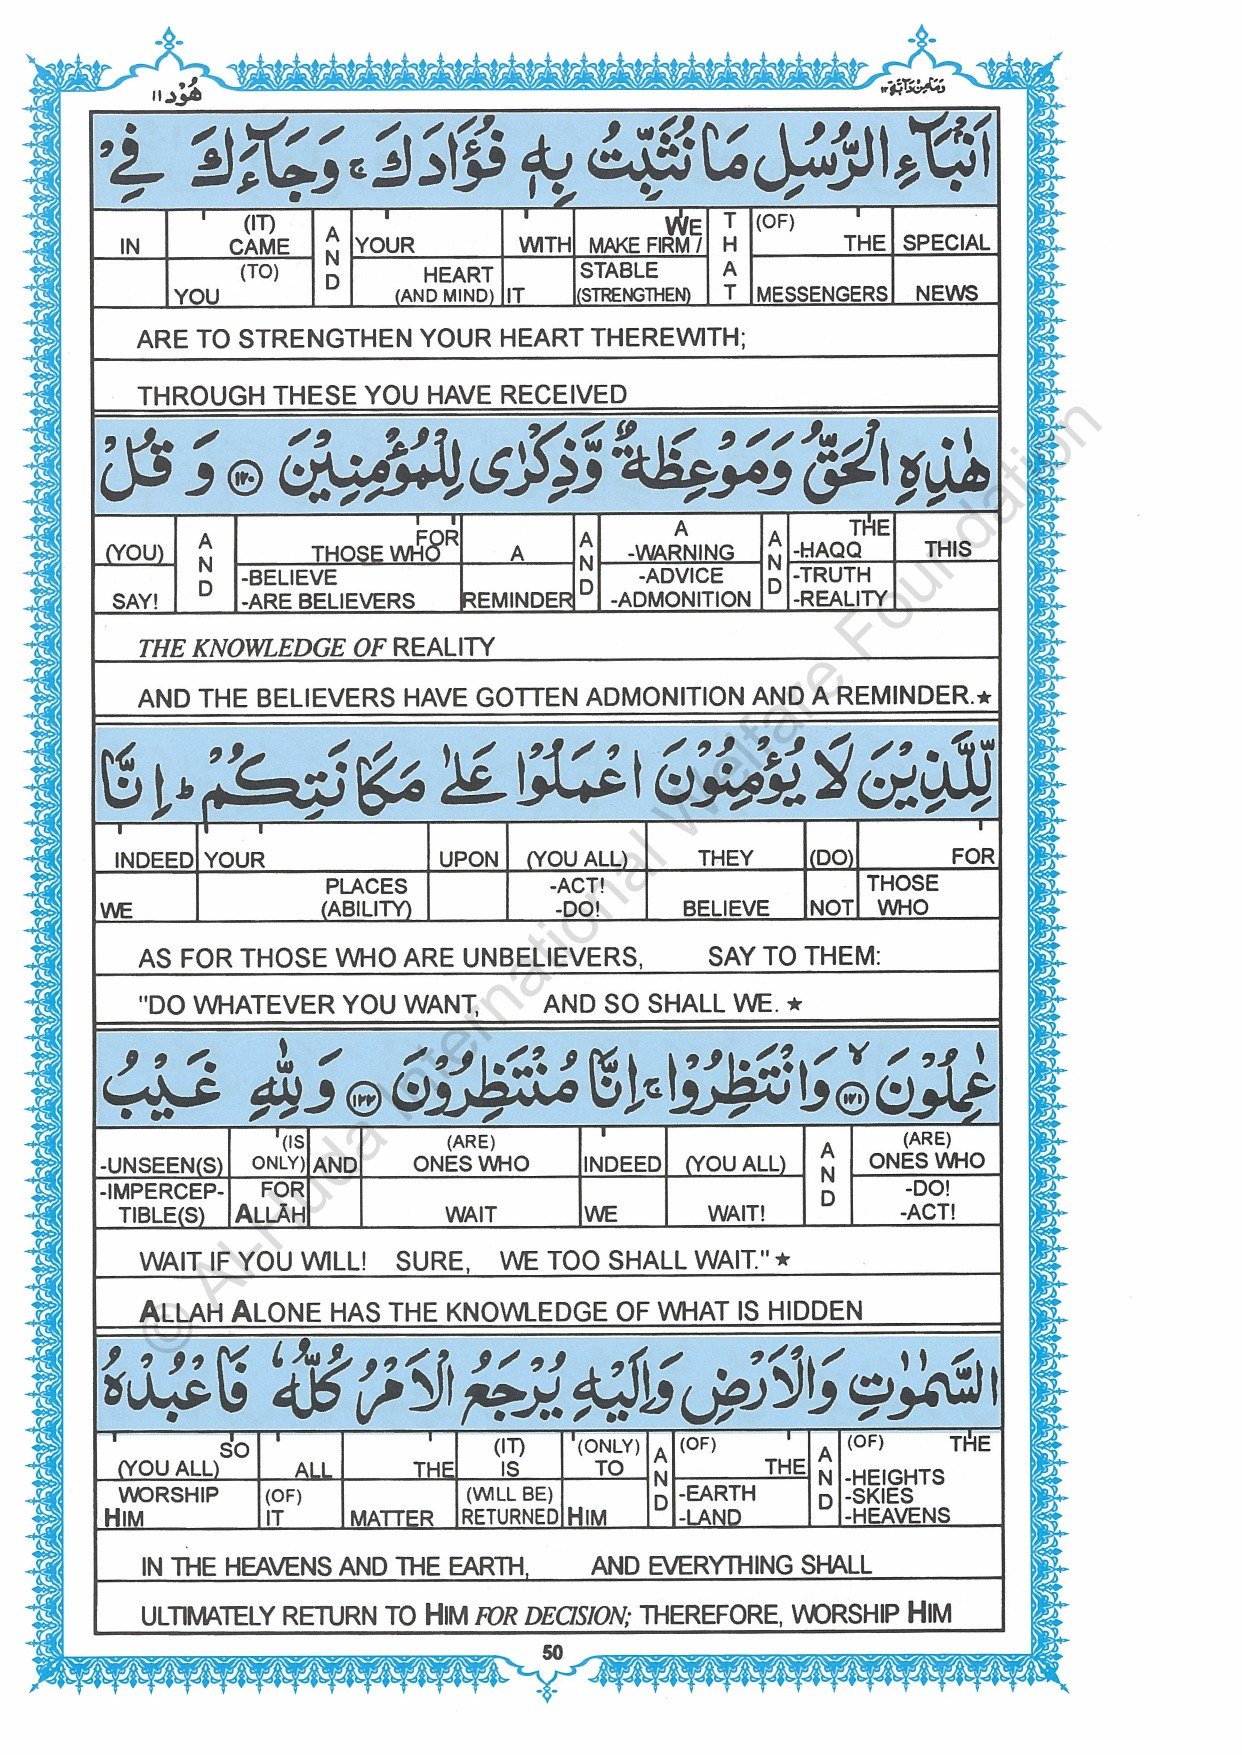 هُوْد ١١
وَمَا مِنْ دَآبَّةٍ ١٢
اَنْۢبَآءِ الرُّسُلِ مَا نُثَبِّتُ بِهٖ فُؤَادَكَ ۚ وَجَآءَكَ فِيْ
IN (IT) CAME AND YOUR WITH WE MAKE FIRM / THAT (OF) THE SPECIAL
(TO) YOU HEART (AND MIND) IT STABLE (STRENGTHEN) MESSENGERS NEWS
ARE TO STRENGTHEN YOUR HEART THEREWITH;
THROUGH THESE YOU HAVE RECEIVED
هٰذِهِ الْحَقُّ وَمَوْعِظَةٌ وَّذِكْرٰى لِلْمُؤْمِنِيْنَ ١٢٠ وَقُلْ
(YOU) AND FOR THOSE WHO A AND A -WARNING AND THE -HAQQ THIS
SAY! -BELIEVE -ARE BELIEVERS REMINDER -ADVICE -ADMONITION -TRUTH -REALITY
THE KNOWLEDGE OF REALITY
AND THE BELIEVERS HAVE GOTTEN ADMONITION AND A REMINDER.★
لِّلَّذِيْنَ لَا يُؤْمِنُوْنَ اعْمَلُوْا عَلٰى مَكَانَتِكُمْ ؕ اِنَّا
INDEED YOUR UPON (YOU ALL) THEY (DO) FOR
WE PLACES (ABILITY) -ACT! -DO! BELIEVE NOT THOSE WHO
AS FOR THOSE WHO ARE UNBELIEVERS, SAY TO THEM:
"DO WHATEVER YOU WANT, AND SO SHALL WE. ★
عٰمِلُوْنَ ۙ ١٢١ وَانْتَظِرُوْا ۚ اِنَّا مُنْتَظِرُوْنَ ١٢٢ وَلِلّٰهِ غَيْبُ
-UNSEEN(S) (IS ONLY) AND (ARE) ONES WHO INDEED (YOU ALL) AND (ARE) ONES WHO
-IMPERCEP-TIBLE(S) FOR ALLĀH WAIT WE WAIT! -DO! -ACT!
WAIT IF YOU WILL! SURE, WE TOO SHALL WAIT." ★
ALLAH ALONE HAS THE KNOWLEDGE OF WHAT IS HIDDEN
السَّمٰوٰتِ وَالْاَرْضِ وَاِلَيْهِ يُرْجَعُ الْاَمْرُ كُلُّهٗ فَاعْبُدْهُ
SO (YOU ALL) ALL THE (IT) IS (ONLY) TO AND (OF) THE AND (OF) THE
WORSHIP HIM (OF) IT MATTER (WILL BE) RETURNED HIM -EARTH -LAND -HEIGHTS -SKIES -HEAVENS
IN THE HEAVENS AND THE EARTH, AND EVERYTHING SHALL
ULTIMATELY RETURN TO HIM FOR DECISION; THEREFORE, WORSHIP HIM
50
© Al-Huda International Welfare Foundation